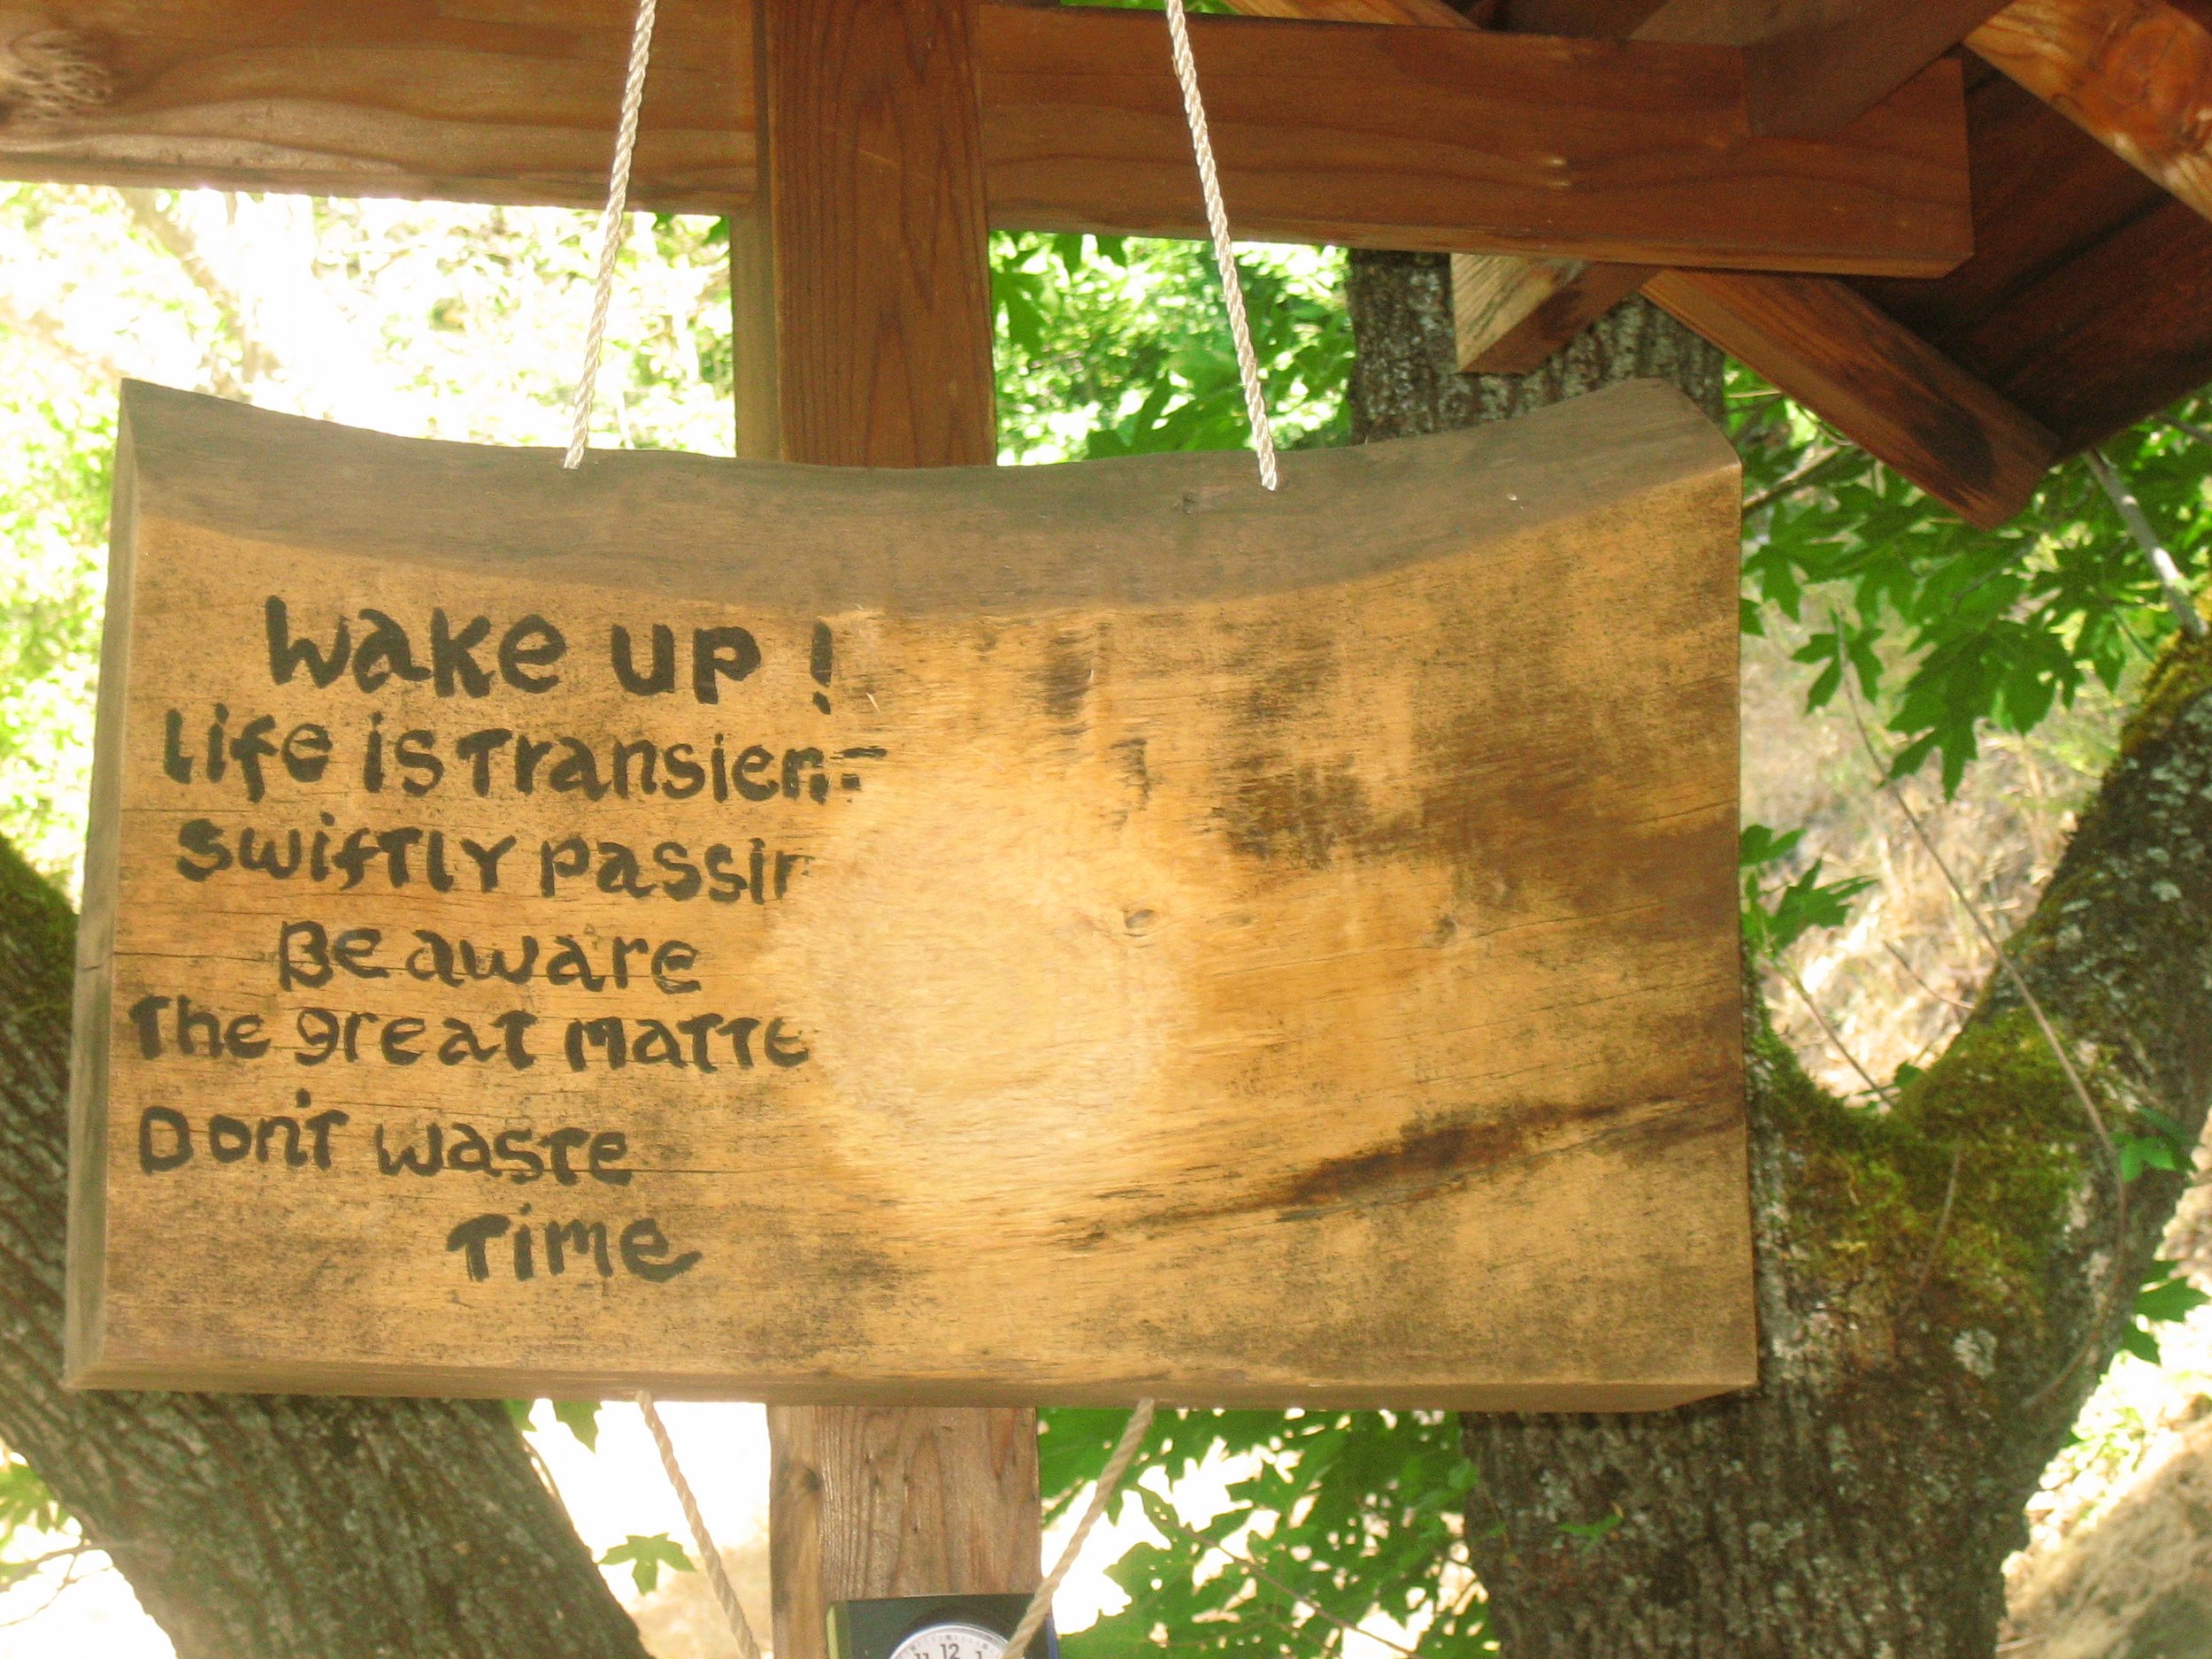 Wake up !
Life is Transient
swiftly passin
Be aware
The great matte
Don't waste
Time
11 12 1